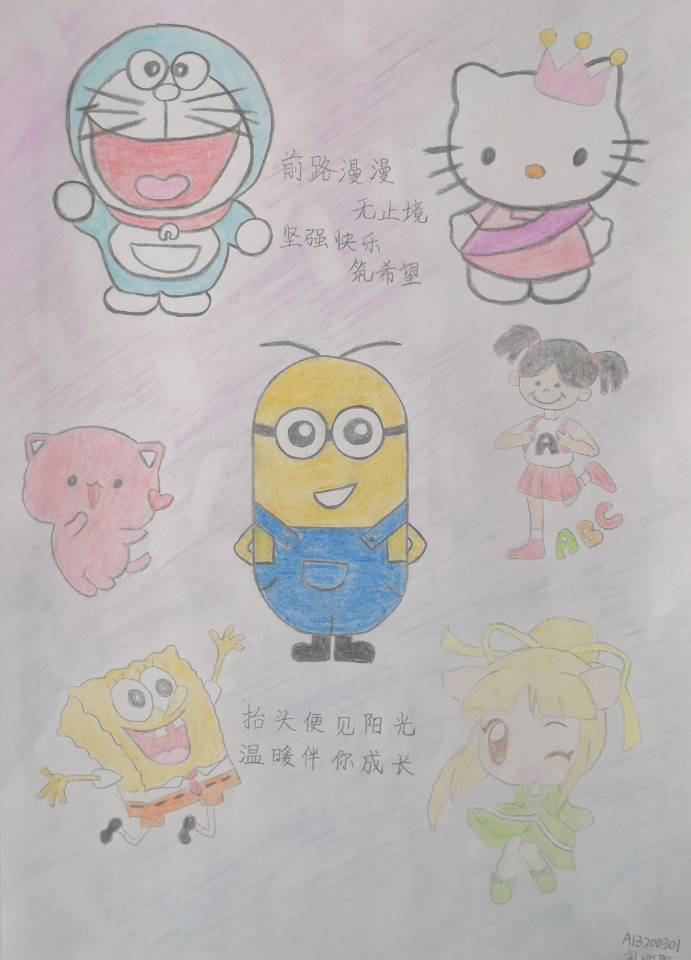 前路漫漫
无止境
坚强快乐
筑希望
A
ABC
抬头便见阳光
温暖伴你成长
A13200301